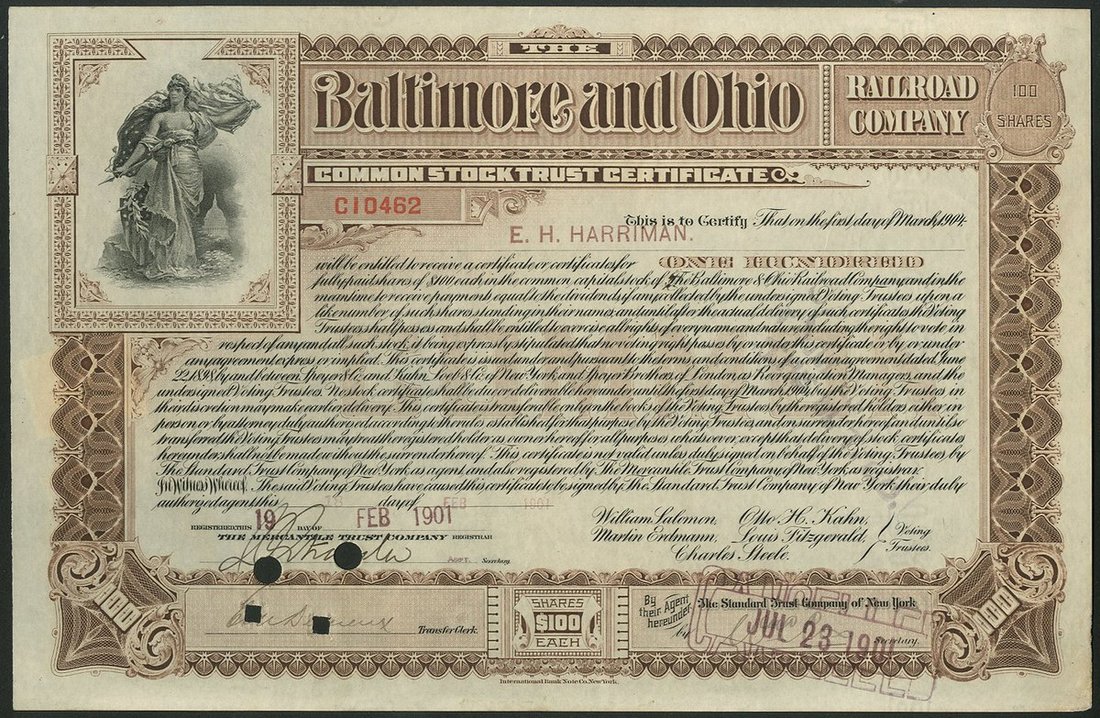 THE
Baltimore and Ohio
RAILROAD
COMPANY
100
SHARES
COMMON STOCK TRUST CERTIFICATE
C10462
This is to Certify That on the first day of March, 1904,
E. H. HARRIMAN.
will be entitled to receive a certificate or certificates for ONE HUNDRED
fully paid shares of $100 each in the common capital stock of The Baltimore & Ohio Railroad Company, and in the
meantime to receive payments equal to the dividends if any collected by the undersigned Voting Trustees upon a
like number of such shares standing in their names; and until after the actual delivery of such certificates the Voting
Trustees shall possess and shall be entitled to exercise all rights of every name and nature, including the right to vote in
respect of any and all such stock, it being expressly stipulated that no voting right passes by or under this certificate or by or under
any agreement express or implied. This certificate is issued under and pursuant to the terms and conditions of a certain agreement dated June
22, 1898, by and between Speyer & Co. and Kuhn, Loeb & Co. of New York, and Speyer Brothers of London, as Reorganisation Managers, and the
undersigned Voting Trustees. No stock certificate shall be due or deliverable hereunder until the first day of March, 1904, but the Voting Trustees, in
their discretion may make earlier delivery. This certificate is transferable only on the books of the Voting Trustees by the registered holders either in
person or by attorney duly authorized, according to the rules established for that purpose by the Voting Trustees, and on surrender hereof; and until so
transferred the Voting Trustees may treat the registered holder as owner hereof for all purposes whatsoever, except that delivery of stock certificates
hereunder shall not be made without the surrender hereof. This certificate is not valid unless duly signed on behalf of the Voting Trustees by
The Standard Trust Company of New York, as agent, and also registered by The Mercantile Trust Company of New York, as registrar.
In Witness Whereof, The said Voting Trustees have caused this certificate to be signed by The Standard Trust Company of New York their duly
authorized agent this day of FEB 1901
REGISTERED THIS 19 DAY OF FEB 1901
THE MERCANTILE TRUST COMPANY REGISTRAR
Asst. Secretary.
William Salomon, Otto H. Kahn,
Martin Erdmann, Louis Fitzgerald,
Charles Steele.
Voting
Trustees.
100
100
Transfer Clerk.
SHARES
$100
EACH
By
their Agent
hereunder
by
The Standard Trust Company of New York
JUL 23 1901
Secretary.
International Bank Note Co. New York.